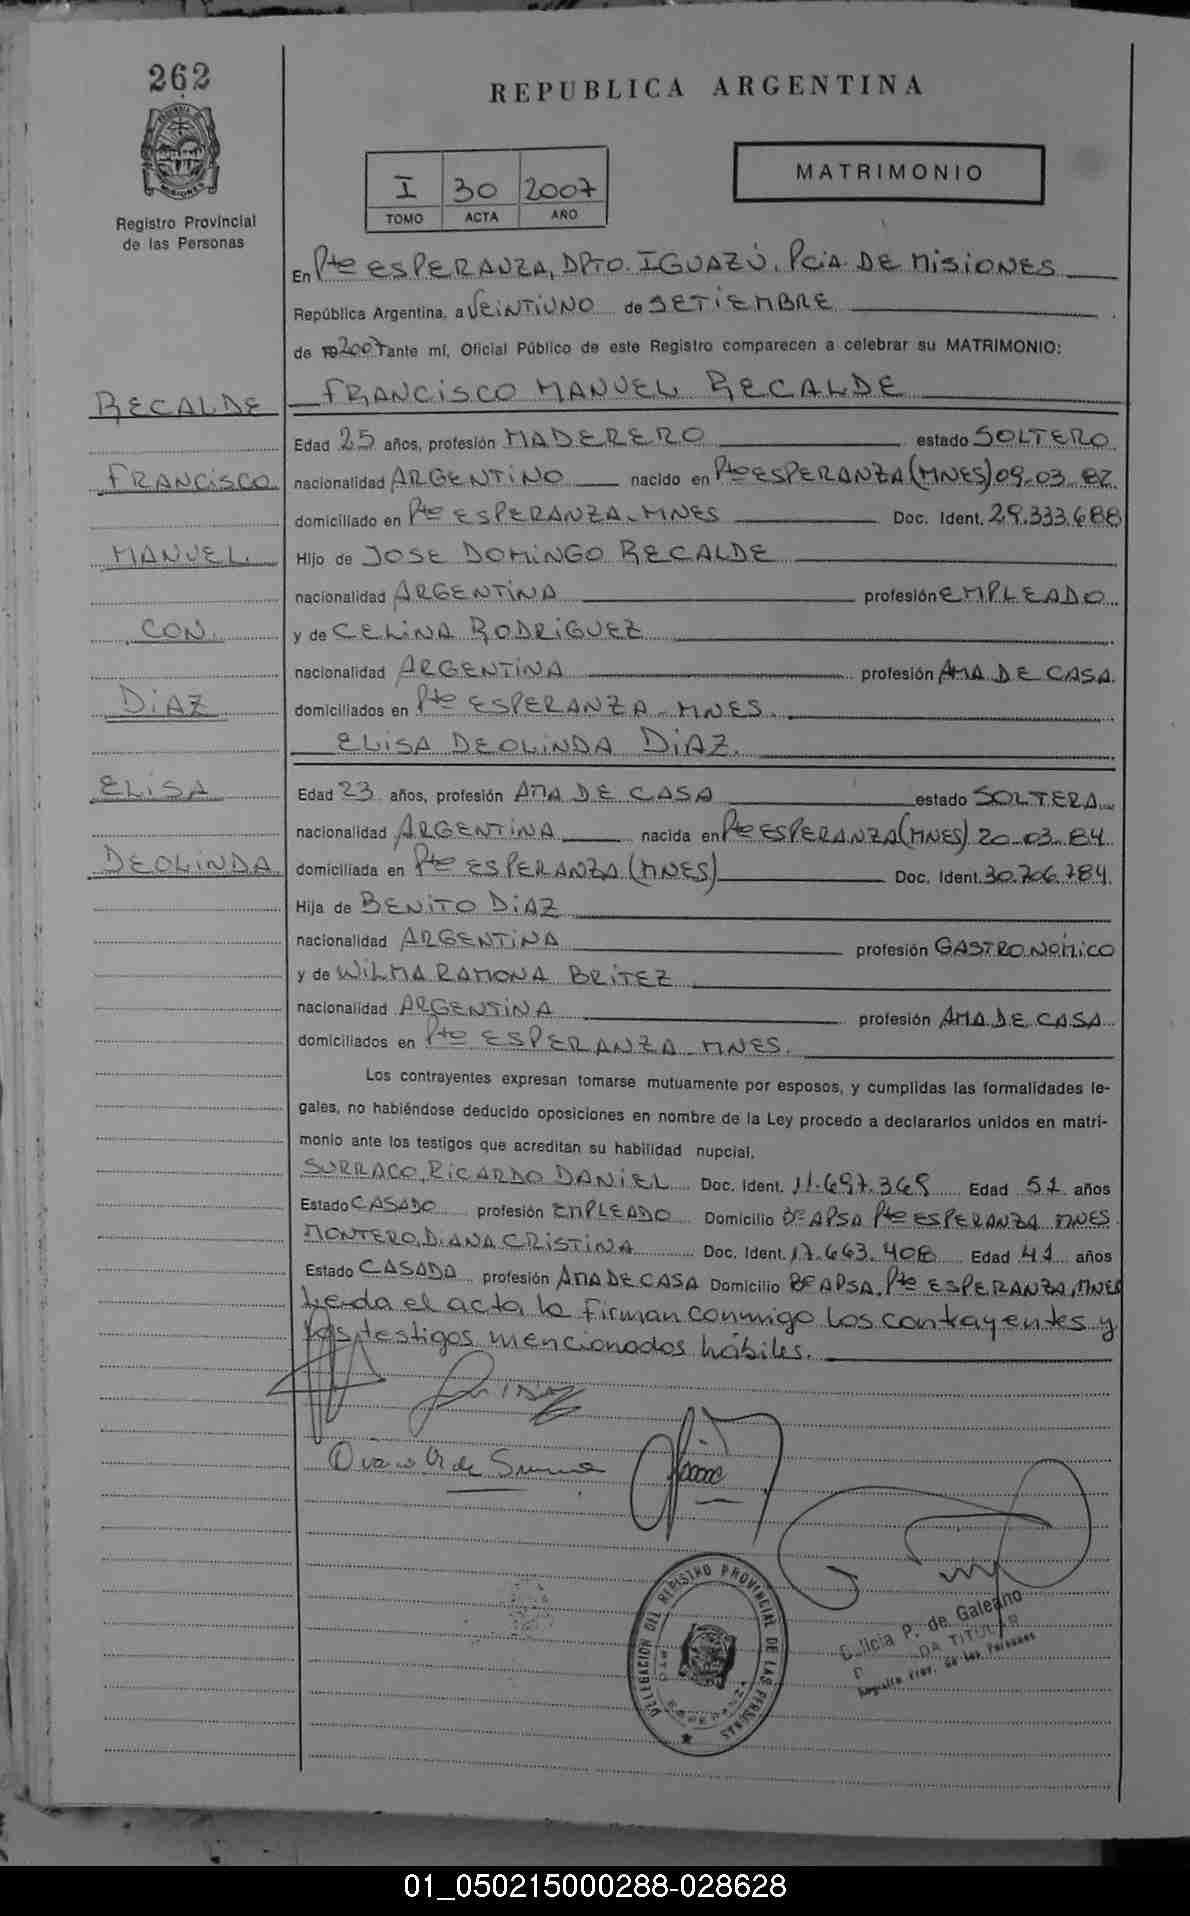 262
REPUBLICA ARGENTINA
MATRIMONIO
I 30 2007
TOMO ACTA AÑO
Registro Provincial
de las Personas
En Pto ESPERANZA, DPTO. IGUAZÚ. PCiA. DE MiSiONES
República Argentina, a VEiNTiUNO de SETiEMBRE
de 19 2007 ante mí, Oficial Público de este Registro comparecen a celebrar su MATRIMONIO:
FRANCiSCO MANUEL RECALDE
RECALDE
Edad 25 años, profesión MADERERO estado SOLTERO
FRANCiSCO
nacionalidad ARGENTiNO nacido en Pto ESPERANZA (MNES) 09-03-82
domiciliado en Pto ESPERANZA-MNES Doc. Ident. 29.333.688
MANUEL
Hijo de JOSE DOMiNGO RECALDE
nacionalidad ARGENTiNA profesión EMPLEADO
CON
y de CELiNA RODRiGUEZ
nacionalidad ARGENTiNA profesión AMA DE CASA
DiAZ
domiciliados en Pto ESPERANZA-MNES.
ELiSA DEOLiNDA DiAZ.
ELiSA
Edad 23 años, profesión AMA DE CASA estado SOLTERA
nacionalidad ARGENTiNA nacida en Pto ESPERANZA (MNES) 20-03-84
DEOLiNDA
domiciliada en Pto ESPERANZA (MNES) Doc. Ident. 30.706.784
Hija de BENiTO DiAZ
nacionalidad ARGENTiNA profesión GASTRONÓMiCO
y de WiLMA RAMONA BRiTEZ
nacionalidad ARGENTiNA profesión AMA DE CASA
domiciliados en Pto ESPERANZA-MNES.
Los contrayentes expresan tomarse mutuamente por esposos, y cumplidas las formalidades le-
gales, no habiéndose deducido oposiciones en nombre de la Ley procedo a declararlos unidos en matri-
monio ante los testigos que acreditan su habilidad nupcial.
SURRACO, RiCARDO DANiEL Doc. Ident. 11.697.369 Edad 51 años
Estado CASADO profesión EMPLEADO Domicilio Bº APSA Pto ESPERANZA MNES
MONTERO, DiANA CRiSTiNA Doc. Ident. 17.663.408 Edad 41 años
Estado CASADA profesión AMA DE CASA Domicilio Bº APSA. Pto ESPERANZA, MNES
Leida el acta la firman conmigo los contrayentes y
los testigos mencionados hábiles.
DELEGACION DEL REGISTRO PROVINCIAL DE LAS PERSONAS
PTO ESPERANZA
P. de Galeano
TITULAR
Registro Prov. de las Personas
01_050215000288-028628